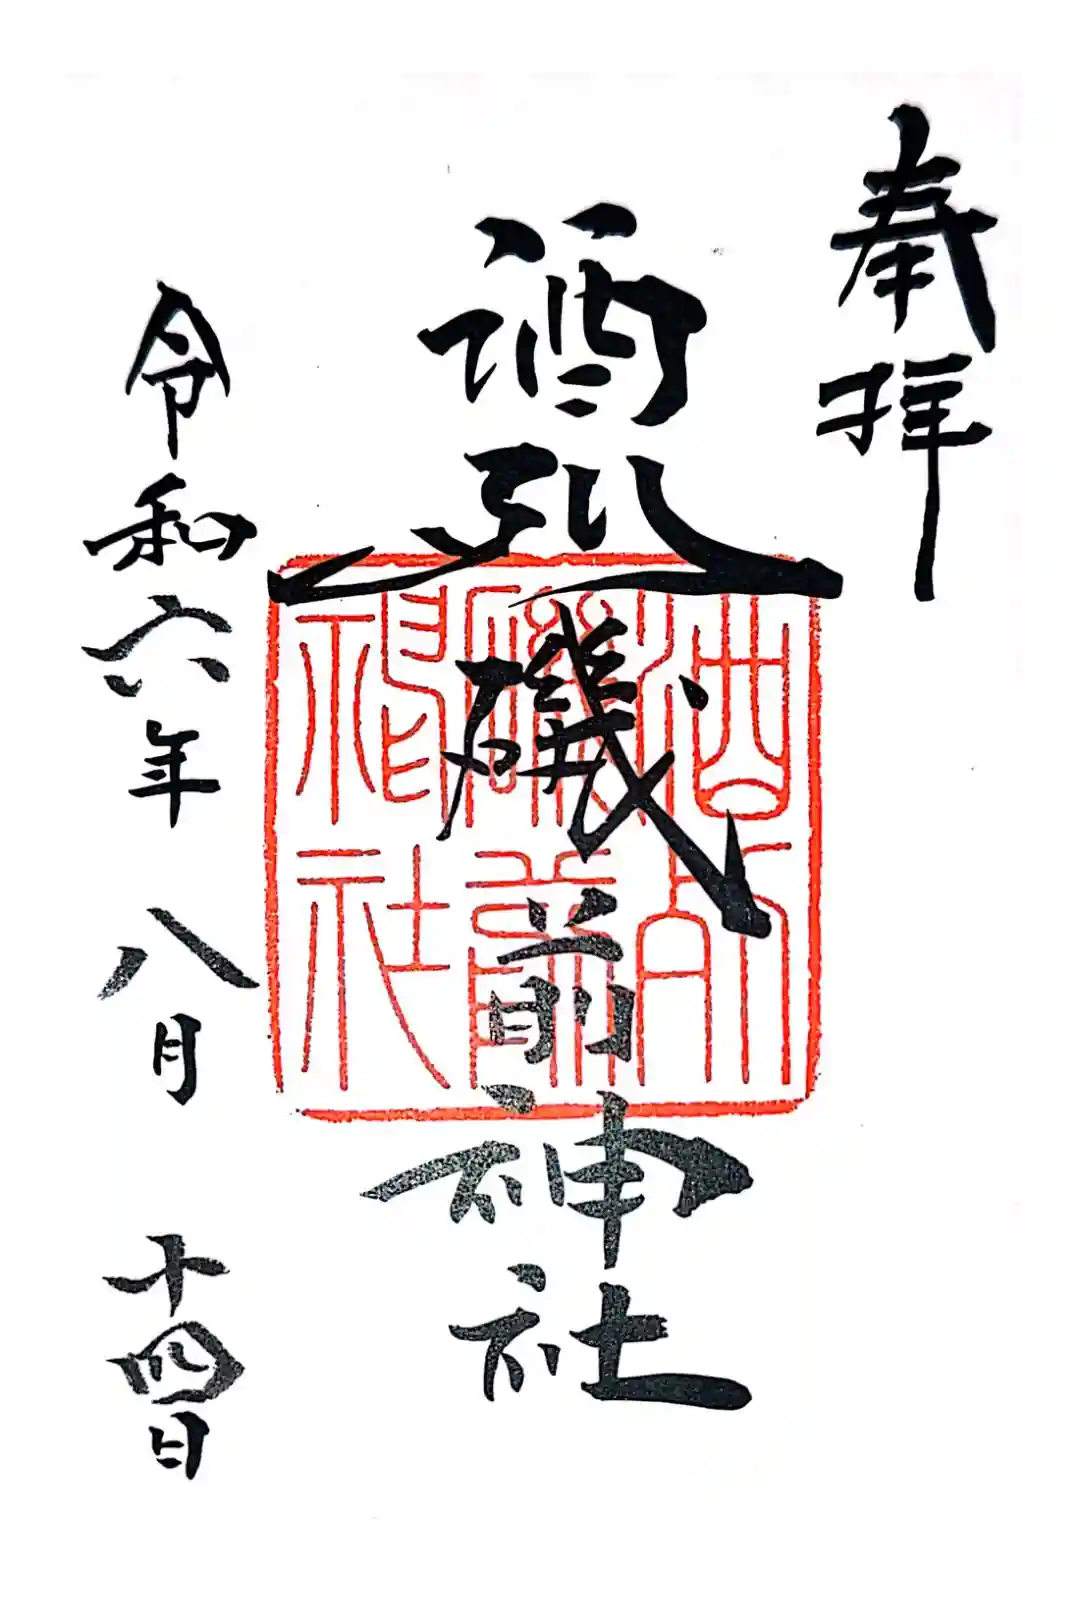 奉拝
酒列磯前神社
酒列
磯前
神社
令和六年八月十四日